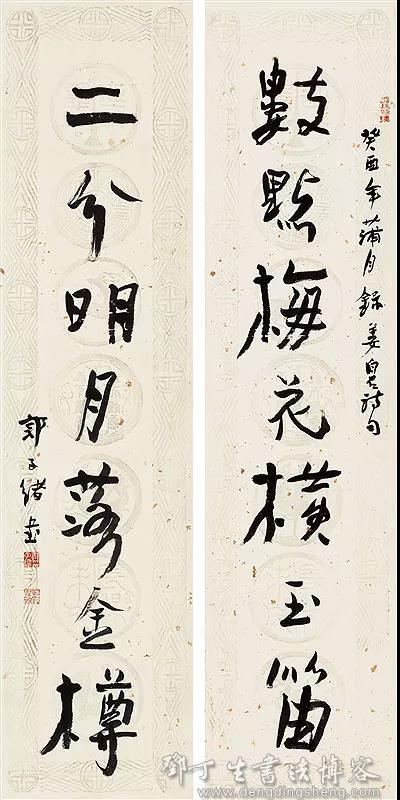 癸酉年蒲月錄姜皐詩句
數點梅花橫玉笛
二分明月落金樽
郭子緒書
鄧丁生書法博客
dengdingsheng.com